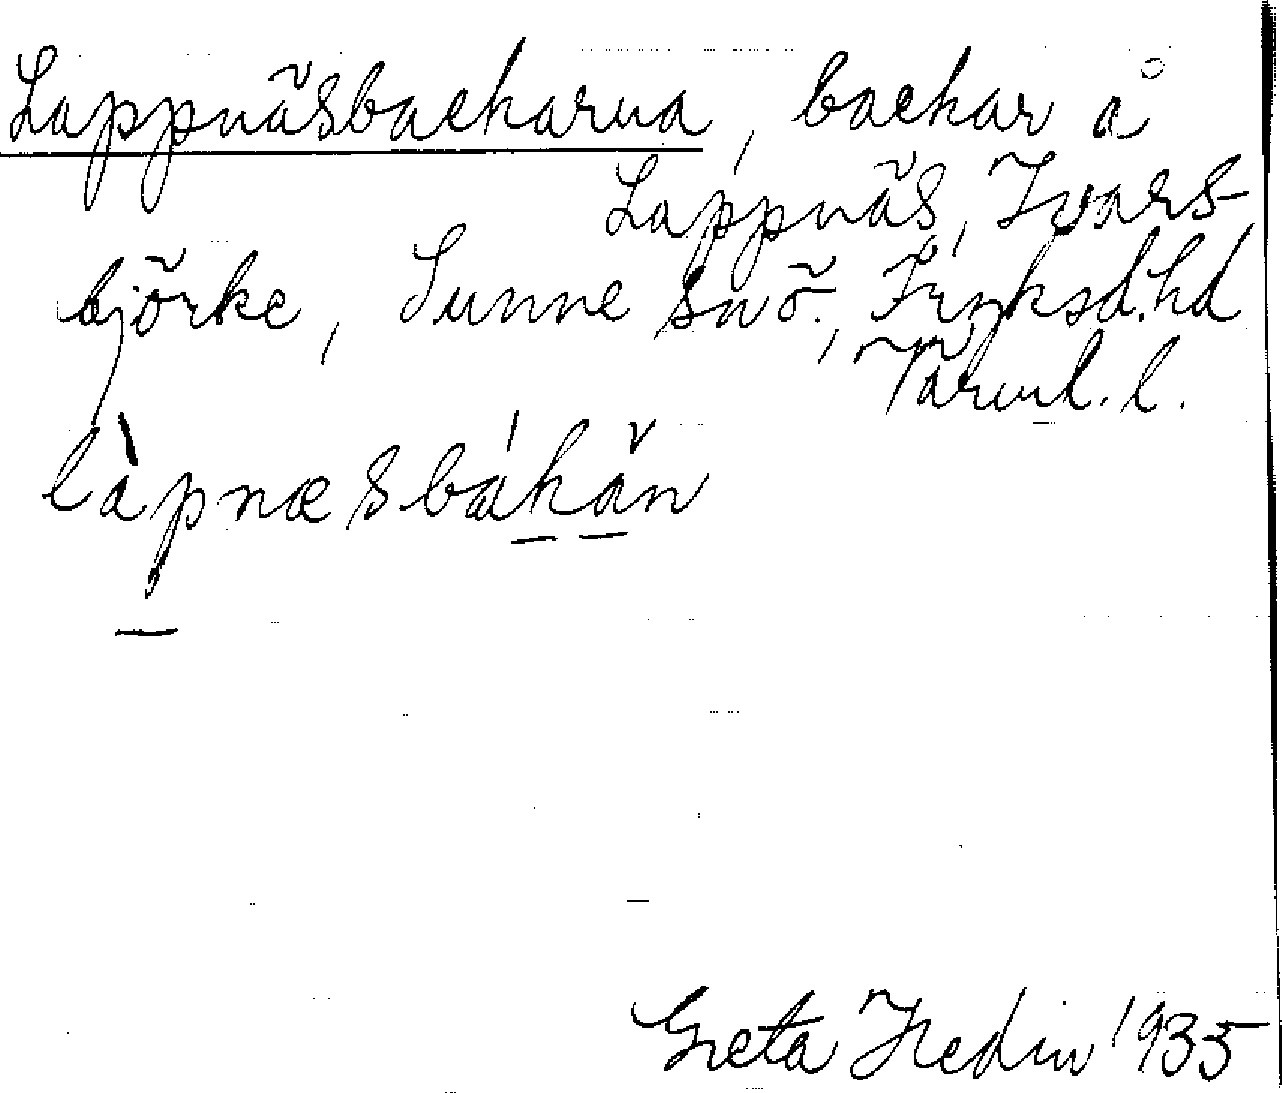 Lappnäsbackarna, backar å
Lappnäs, Ivars-
björke, Sunne snö., Fryksd. hd
Värml. l.
làpnæsbákǎn
Greta Hedin 1935